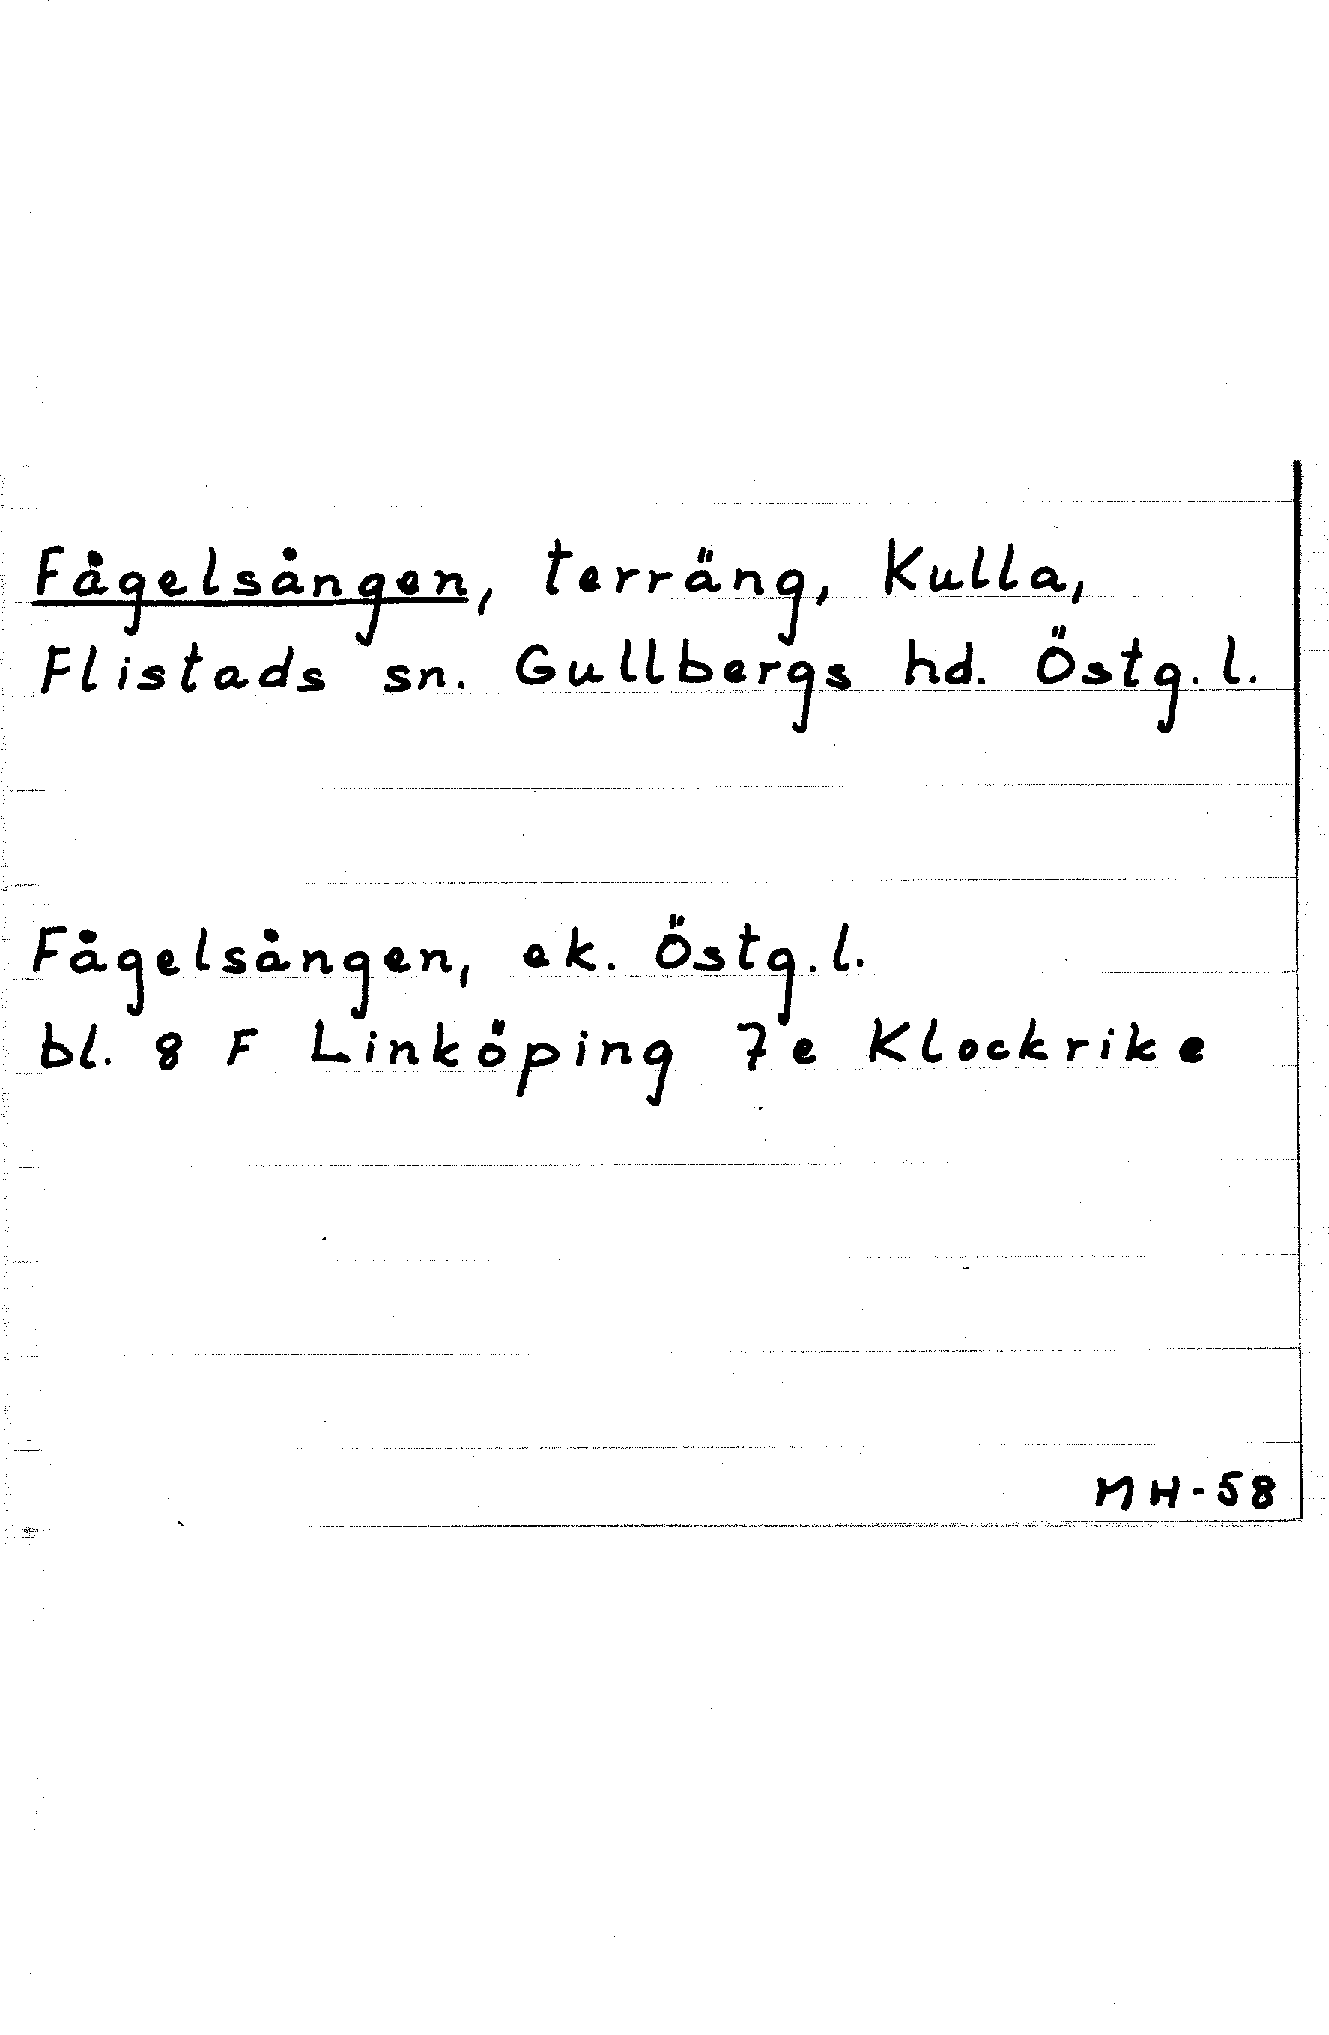 Fågelsången, terräng, Kulla,
Flistads sn. Gullbergs hd. Östg.l.
Fågelsången, ek. Östg.l.
bl. 8 F Linköping 7e Klockrike
MH-58